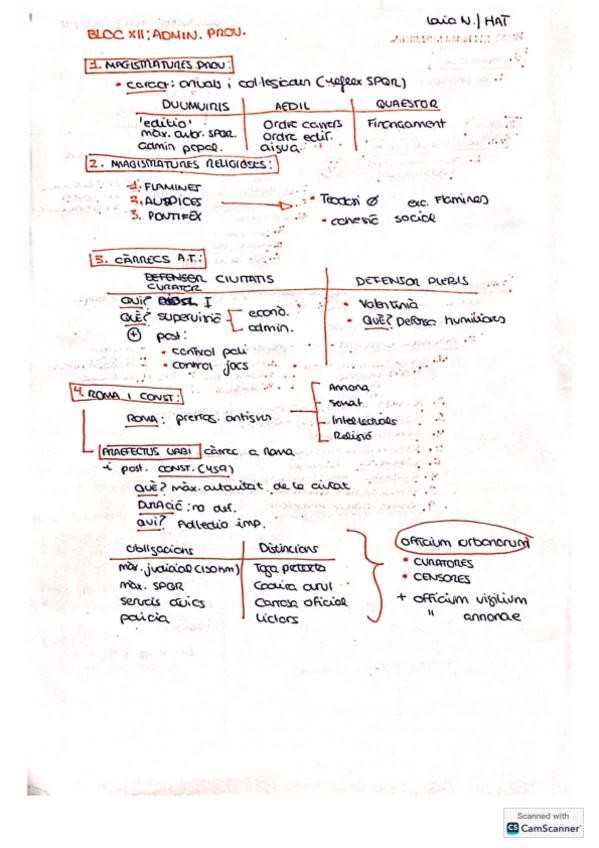 Laia N. / HAT
BLOC XII: ADMIN. PROV.
1. MAGISTRATURES PROV:
• caract: anuals i col·legiades (reflex SPQR)
DUUMVIRIS AEDIL QUAESTOR
'editio' Ordre carrers Finançament
màx. autor. SPQR. ordre edif.
admin popal. aigua.
2. MAGISTRATURES RELIGIOSES:
1. FLAMINES
2. AUSPICES • Teodosi Ø exc. Flamines
3. PONTIFEX • cohesió social
3. CÀRRECS A.T.:
DEFENSOR CIUITATIS DEFENSOR PLEBIS
CURATOR
QUI? I • Valentinià
QUÈ? supervisió econò. • QUÈ? Defensa humiliores
admin.
+ post:
• control poli
• control jocs
4. ROMA I CONST:
Annona
Senat
ROMA: prerrog. antigues
Intellectuals
Religió
PRAEFECTUS URBI càrrec a Roma
i post. CONST. (459)
QUÈ? màx. autoritat de la ciutat
DURACIÓ: no def.
QUI? Adlectio imp.
Obligacions Distincions
màx. judicial (150km) Toga pretexta
màx. SPQR Cadira curul
serveis cívics Carrosa oficial
policia lictors
officium urbanorum
• CURATORES
• CENSORES
+ officium vigilium
" annonae
Scanned with
CS CamScanner